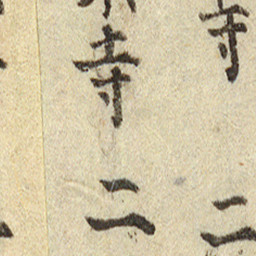 寺二
寺二